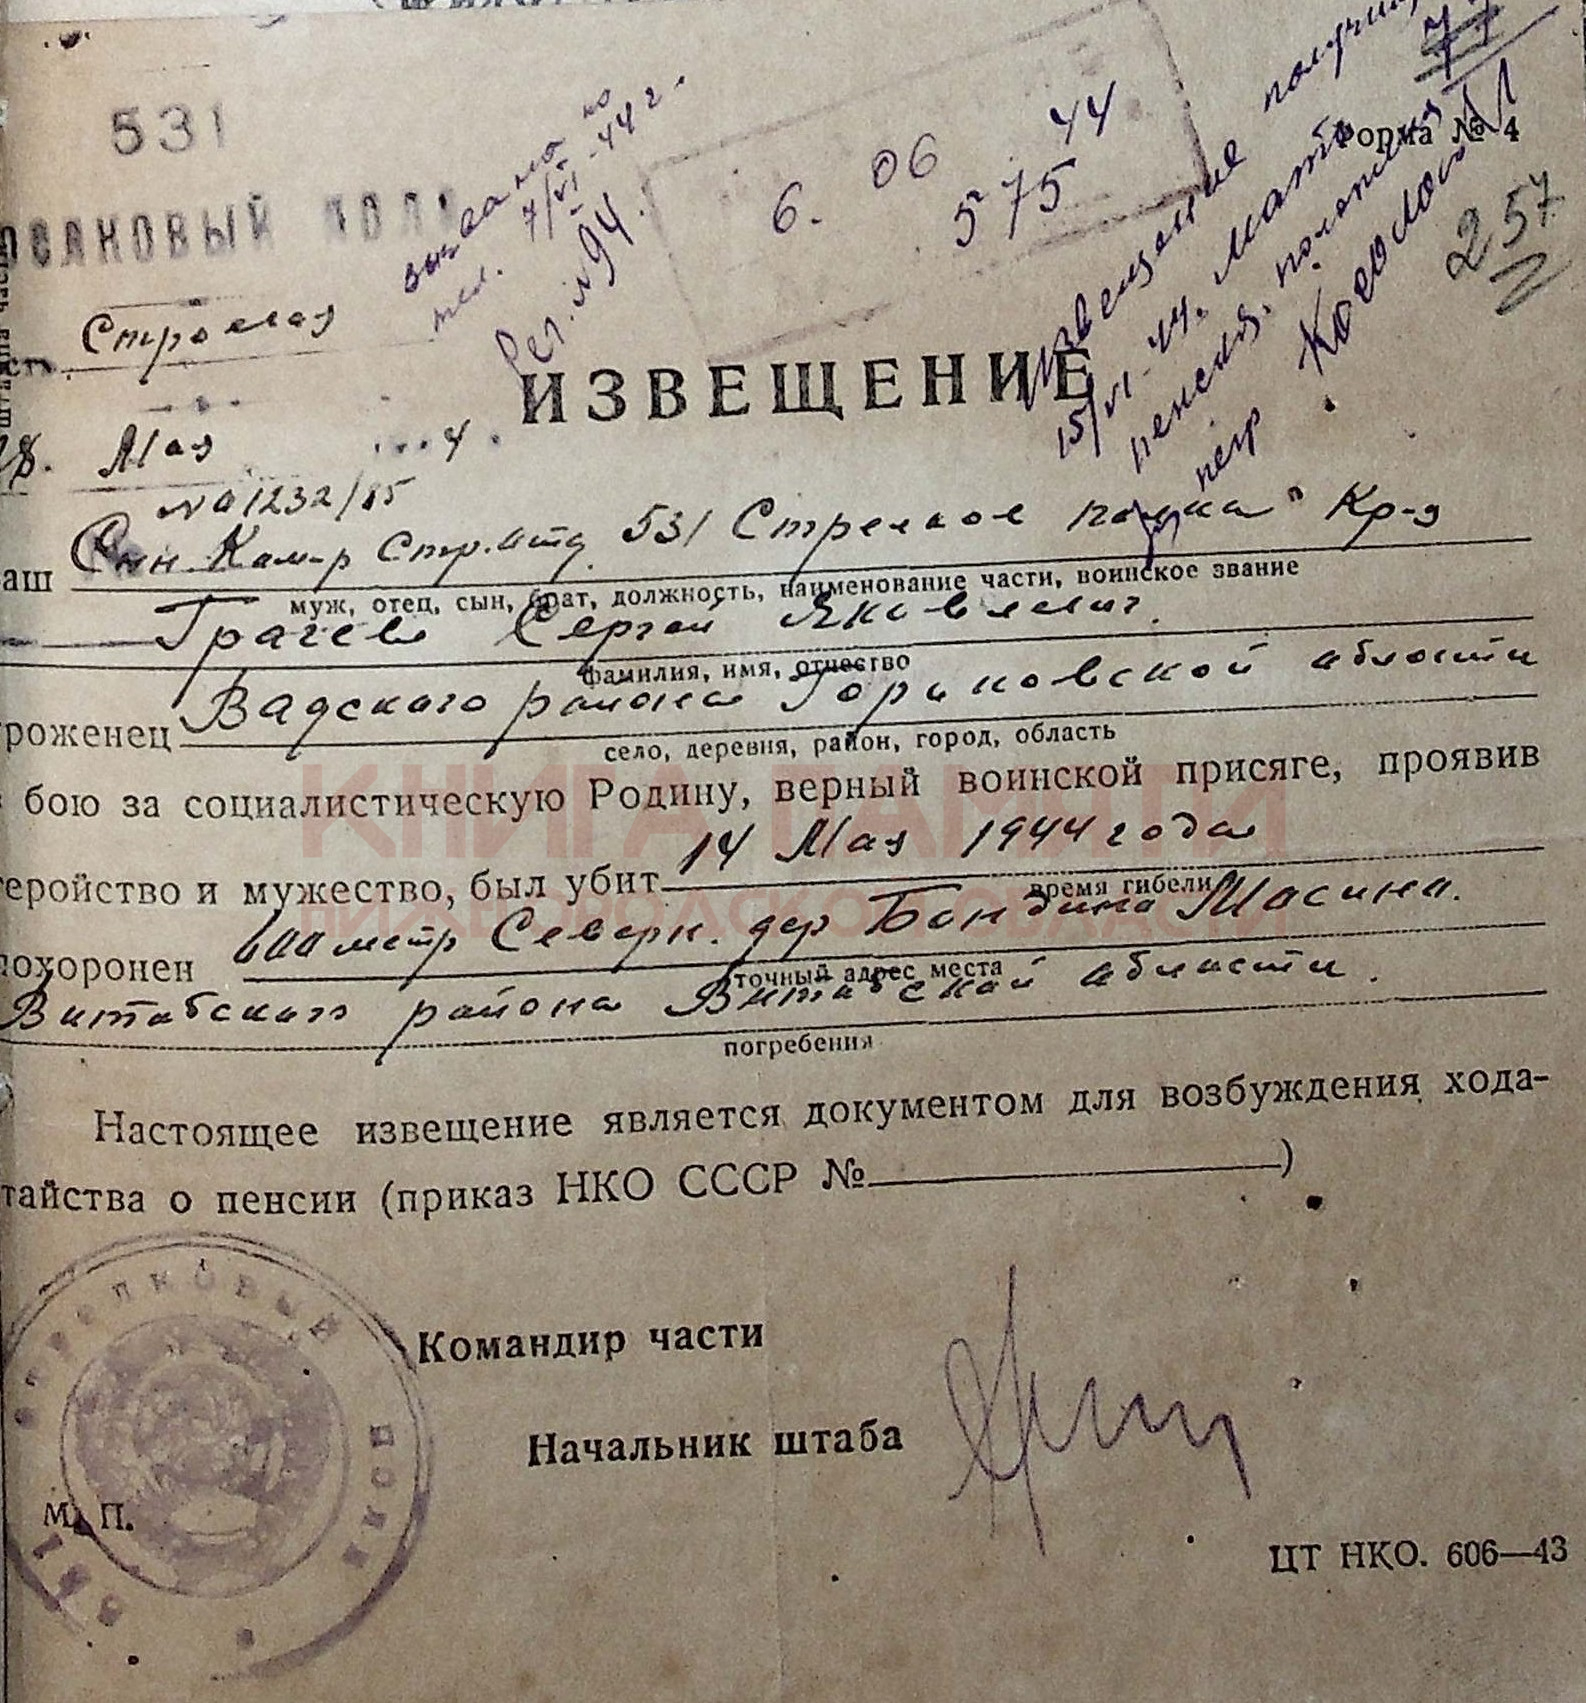 Форма № 4
531
6. 06 44
575
257
вызвана по
тел. 7/VI-44 г.
Рег. № 94.
Извещение получил
15/VI-44. Мать
ИЗВЕЩЕНИЕ
Строевая
18. Мая 4.
№ 01232/15
аш Сын. Ком-р Стр. отд. 531 Стрелков полка Кр-ц
муж, отец, сын, брат, должность, наименование части, воинское звание
Грачев Сергей Яковлевич.
фамилия, имя, отчество
роженец Вадского района Горьковской области
село, деревня, район, город, область
бою за социалистическую Родину, верный воинской присяге, проявив
геройство и мужество, был убит 14 Мая 1944 года
время гибели
похоронен 600 метр Северн. дер
точный адрес места
Витебского района Витебской области.
погребения
Настоящее извещение является документом для возбуждения хода-
тайства о пенсии (приказ НКО СССР № )
Командир части
Начальник штаба
М. П.
ЦТ НКО. 606—43
КНИГА ПАМЯТИ
НИЖЕГОРОДСКОЙ ОБЛАСТИ